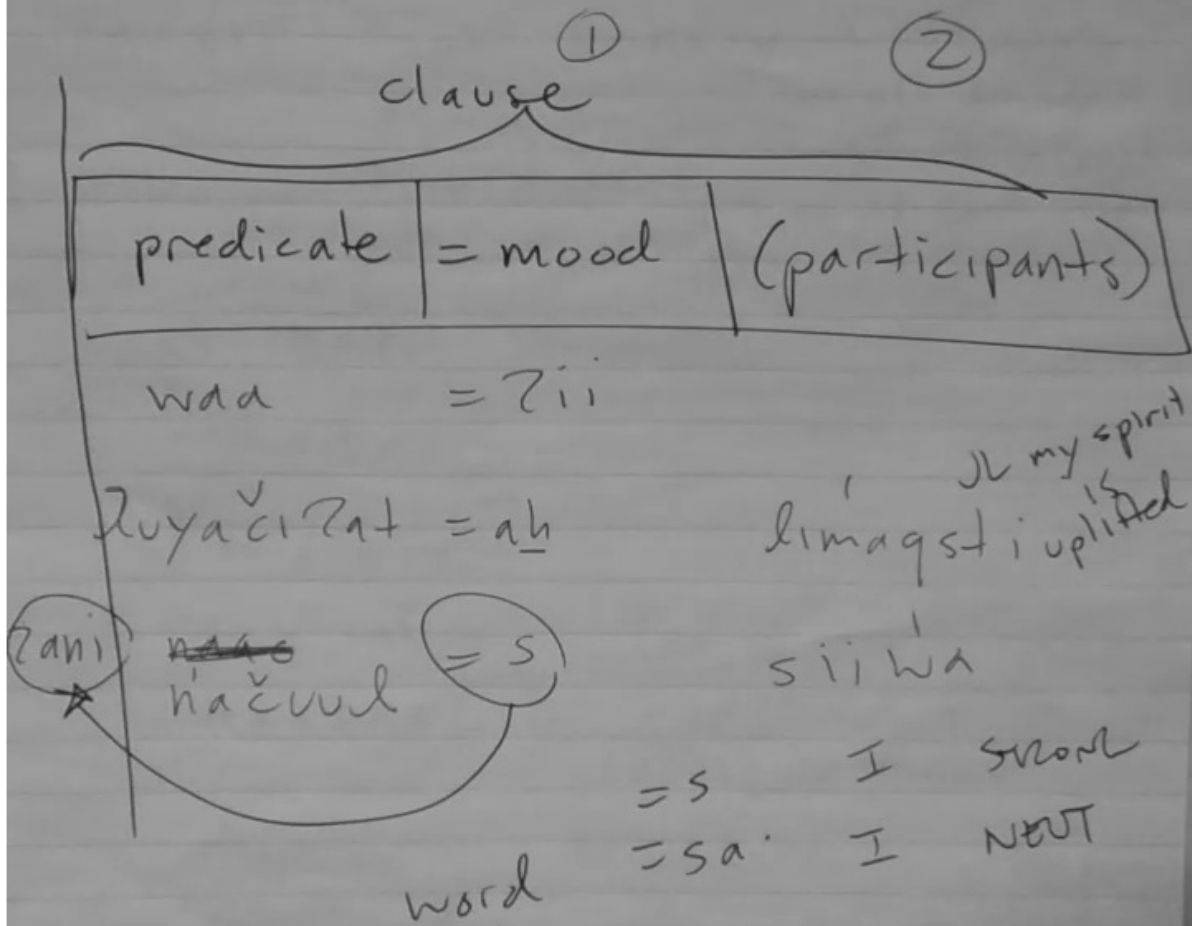 ① ②
clause
predicate = mood (participants)
waa = ʔii
ʔuyačiʔat = aḥ łim̓aqsti
my spirit is uplifted
ʔani
n̓ačuuł = s siiw̓a
= s I
= sa I NEUT
word